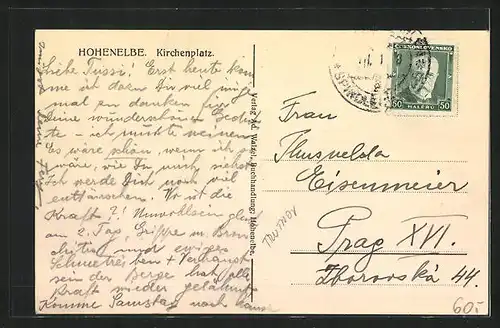 HOHENELBE. Kirchenplatz.
Liebe Tussi! Erst heute kom
me ich dazu Dir viel
mal zu danken für
Deine wunderschönen Gedich
te - ich musste weinen.
Es wäre schön, wenn ich so
wäre, wie Du mich siehst.
Ich werde Dich noch viel
enttäuschen. Wo ist die
Kraft?!
am 2. Tag, Grippe m. Bron
chitis und ewiges
Schneetreiben +
sein der Berge hat alle
Kraft wieder gelähmt.
Komme Samstag nach Hause
Verlag Ad. Walzel, Buchhandlung, Hohenelbe.
ČESKOSLOVENSKO
50 HALÉŘŮ 50
Frau
Thusnelda
Eisenmeier
Prag XVI.
Zborovská 44.
60.-